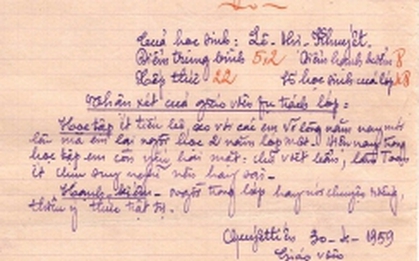 Của học sinh: Lê-Thị-Khuyết.
Điểm trung bình 5,2 Điểm hạnh kiểm 8
Xếp thứ 22 Số học sinh của lớp 48
Nhận xét của giáo viên phụ trách lớp:
Học tập ít tiến bộ so với các em vỡ lòng năm nay mới
lên mà em lại người học 2 năm lớp một. Hiện nay trong
học tập em còn yếu hai mặt: chữ viết bẩn, làm Toán
ít chịu suy nghĩ nên hay sai.
Hạnh kiểm - người trong lớp hay nói chuyện riêng,
thiếu ý thức trật tự.
Quyết tiến 30-X-1959
Giáo viên